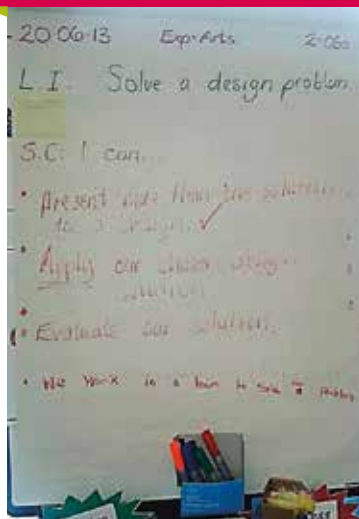 20.06.13 Exp. Arts
L.I. Solve a design problem.
S.C: I can...
• Present more than one solution
to a design. ✓
• Apply our chosen design
solution
• Evaluate our solution.
• We work in a team to solve a problem